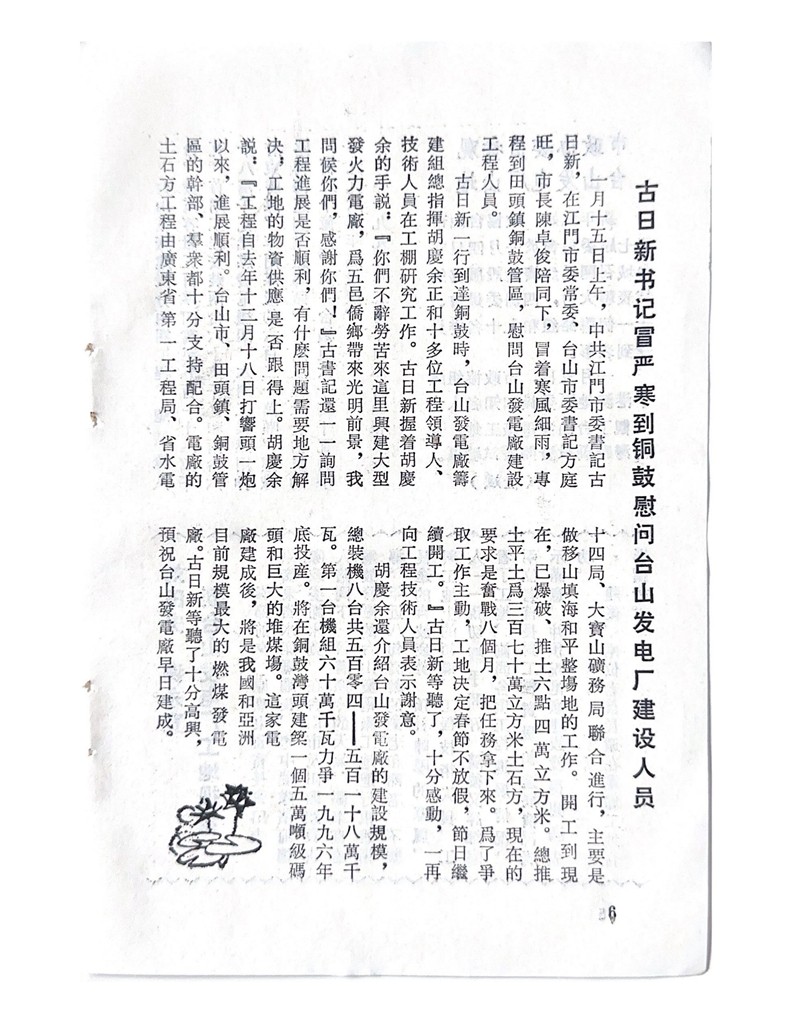 古日新书记冒严寒到铜鼓慰问台山发电厂建设人员
一月十五日上午，中共江門市委書記古
日新，在江門市委常委、台山市委書記方庭
旺，市長陳卓俊陪同下，冒着寒風細雨，專
程到田頭鎮銅鼓管區，慰問台山發電廠建設
工程人員。
古日新一行到達銅鼓時，台山發電廠籌
建組總指揮胡慶余正和十多位工程領導人、
技術人員在工棚研究工作。古日新握着胡慶
余的手説：『你們不辭勞苦來這里興建大型
發火力電廠，爲五邑僑鄉帶來光明前景，我
問候你們，感謝你們！』古書記還一一詢問
工程進展是否順利，有什麽問題需要地方解
决，工地的物資供應是否跟得上。胡慶余
説：『工程自去年十二月十八日打響頭一炮
以來，進展順利。台山市、田頭鎮、銅鼓管
區的幹部、羣衆都十分支持配合。電廠的
土石方工程由廣東省第一工程局、省水電
十四局、大寶山礦務局聯合進行，主要是
做移山填海和平整塲地的工作。開工到現
在，已爆破、推土六點四萬立方米。總推
土平土爲三百七十萬立方米土石方，現在的
要求是奮戰八個月，把任務拿下來。爲了爭
取工作主動，工地决定春節不放假，節日繼
續開工。』古日新等聽了，十分感動，一再
向工程技術人員表示謝意。
胡慶余還介紹台山發電廠的建設規模，
總裝機八台共五百零四——五百一十八萬千
瓦。第一台機組六十萬千瓦力爭一九九六年
底投産。將在銅鼓灣頭建築一個五萬噸級碼
頭和巨大的堆煤塲。這家電
廠建成後，將是我國和亞洲
目前規模最大的燃煤發電
廠。古日新等聽了十分高興，
預祝台山發電廠早日建成。
6